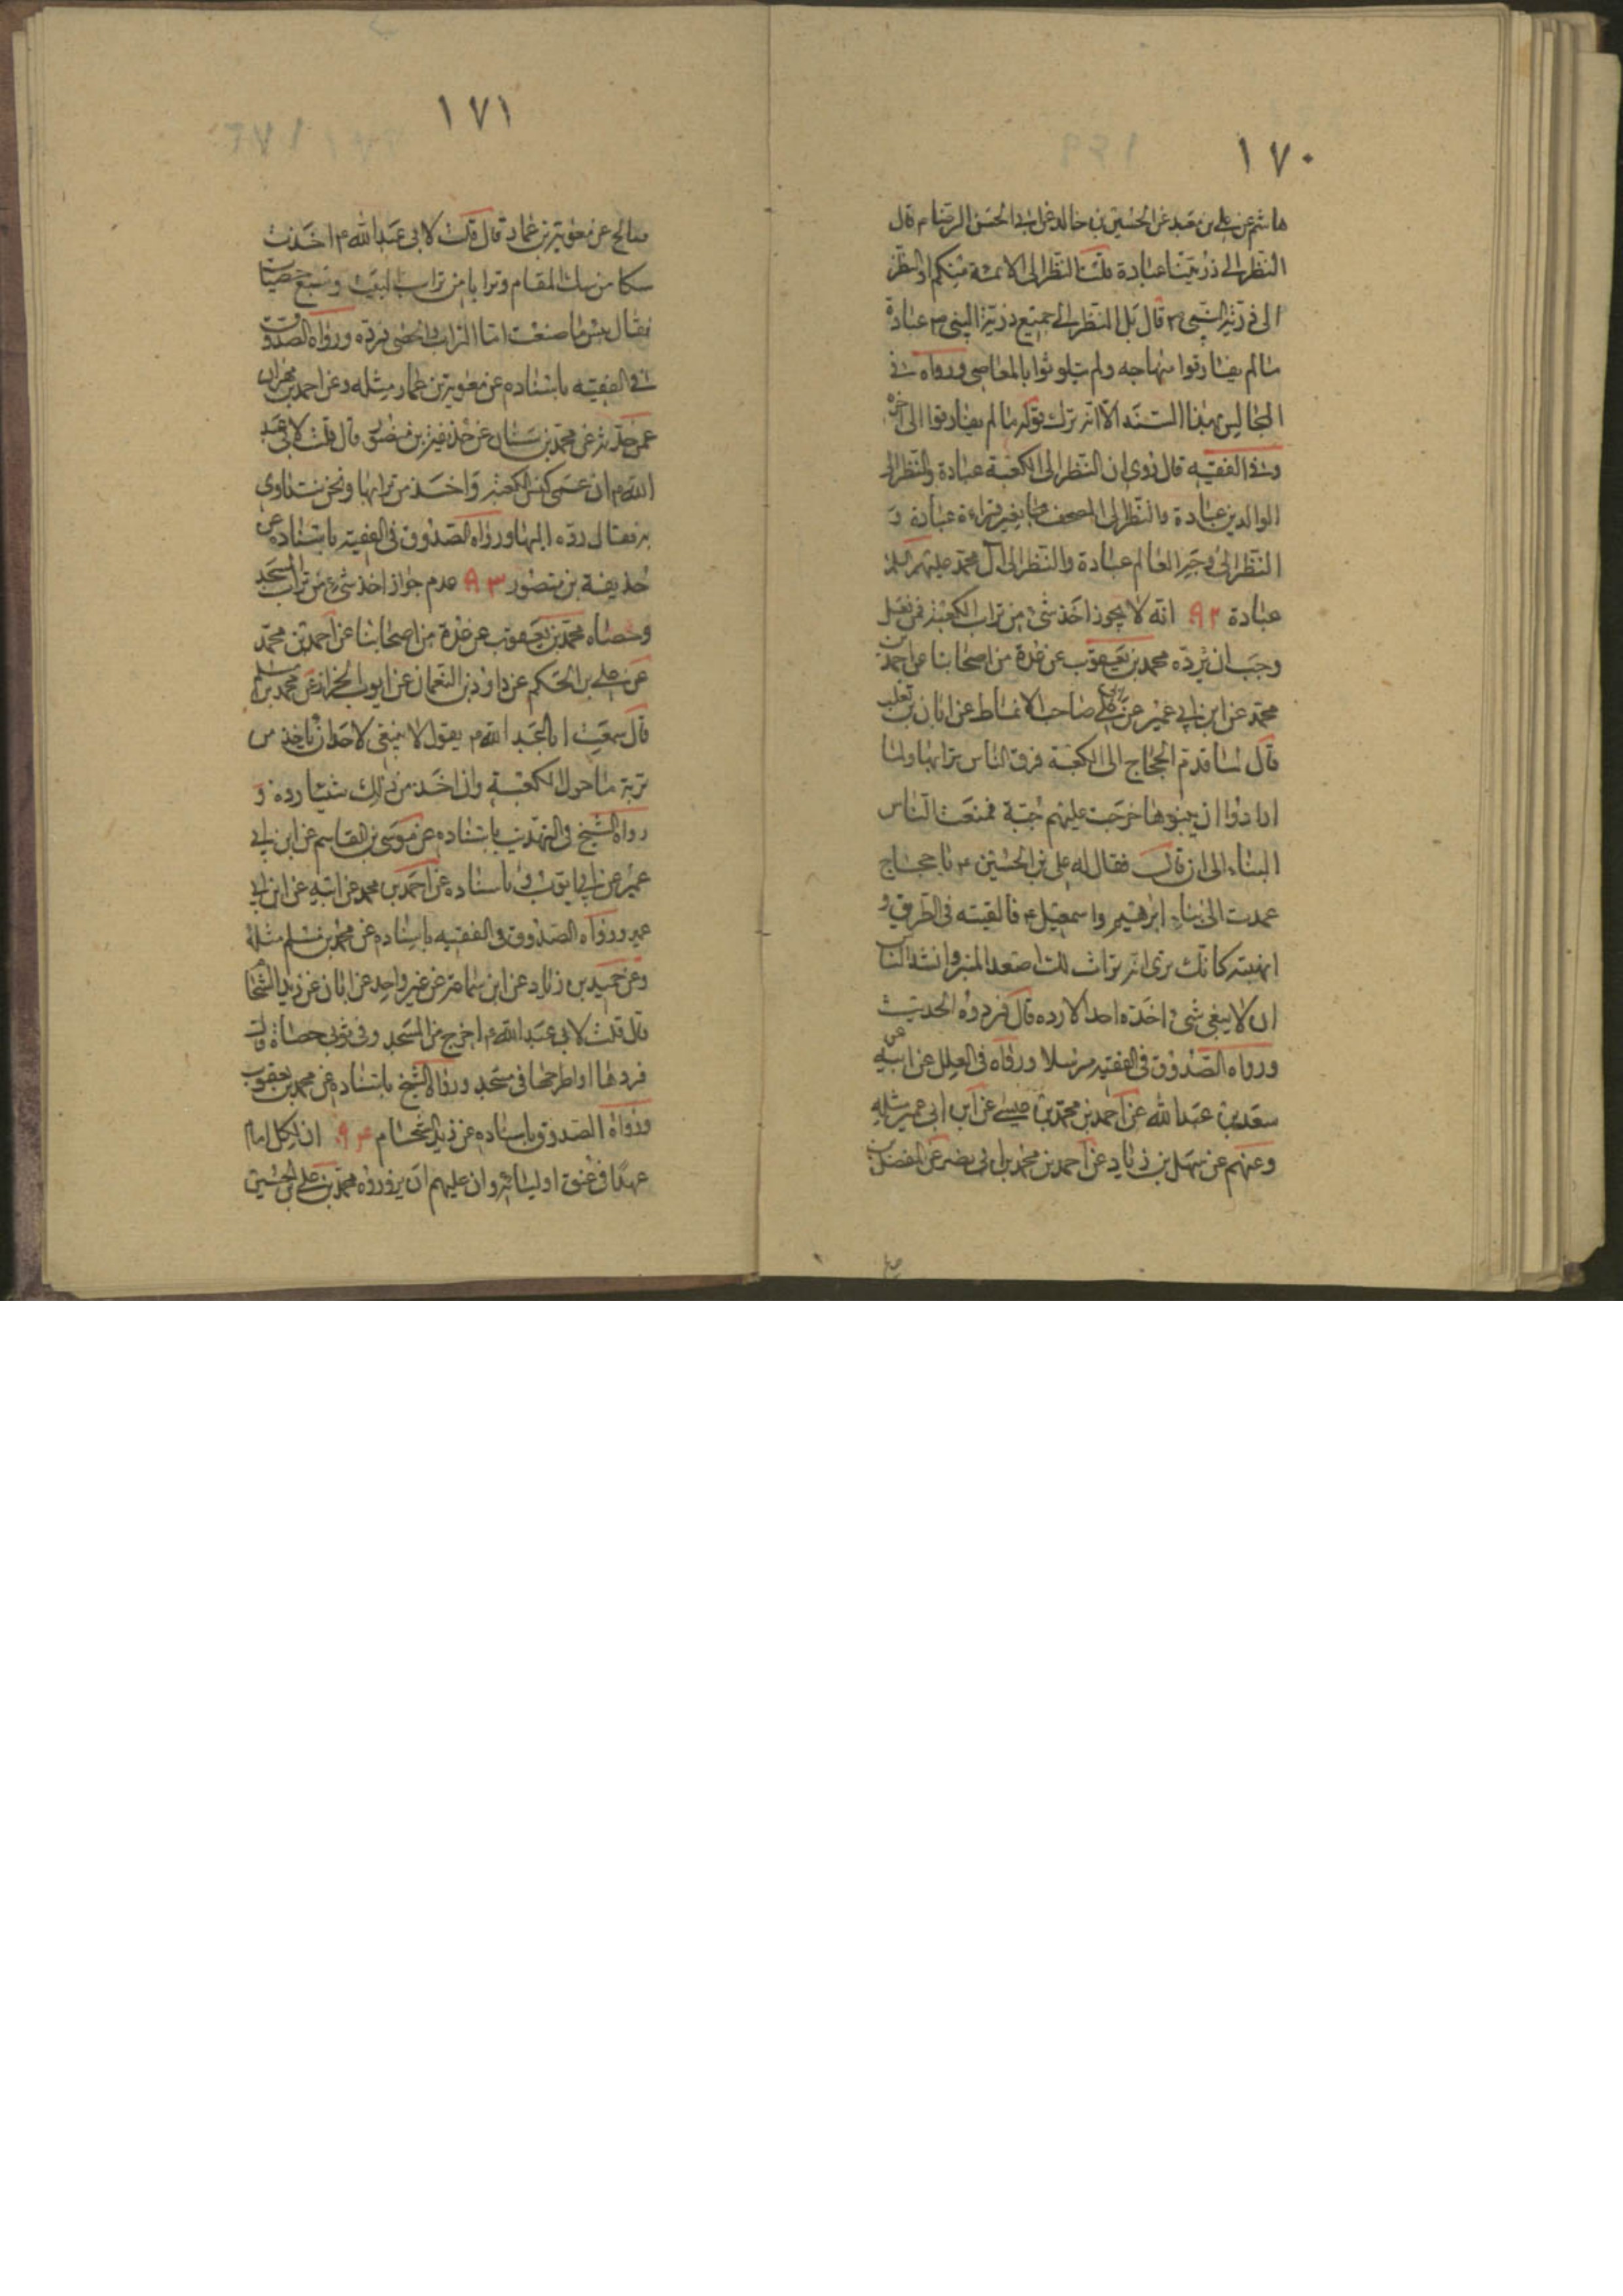 ١٧٠
هاشم عن علي بن معبد عن الحسين بن خالد عن ابي الحسن الرضا م قال
النظر الى ذريتنا عبادة قلت النظر الى الائمة منكم او النظر
الى ذرية النبي ص قال بل النظر الى جميع ذرية النبي ص عبادة
ما لم يفارقوا منهاجه ولم يتلوثوا بالمعاصي ورواه في
المجالس بهذا السند الا انه ترك قوله ما لم يفارقوا الى اخره
وفي الفقيه قال روي ان النظر الى الكعبة عبادة والنظر الى
الوالدين عبادة والنظر الى المصحف من غير قراءة عبادة و
النظر الى وجه العالم عبادة والنظر الى آل محمد عليهم السلم
عبادة ٩٢ انه لا يجوز اخذ شئ من تراب الكعبة فمن فعل
وجب ان يرده محمد بن يعقوب عن عدة من اصحابنا عن احمد بن
محمد عن ابن ابي عمير عن ابي علي صاحب الانماط عن ابان بن تغلب
قال لما قدم الحجاج الى الكعبة فرق الناس ترابها ولما
ارادوا ان يبنوها خرجت عليهم حية فمنعت الناس
البناء الى ان قال فقال له علي بن الحسين ع يا حجاج
عمدت الى بناء ابرهيم واسمعيل ع فالقيته في الطريق و
انهبته كانك ترى انه تراث لك اصعد المنبر وانشد الناس
ان لا يبقى شئ اخذه احد الا رده قال فردوه الحديث
ورواه الصدوق في الفقيه مرسلا ورواه في العلل عن ابيه عن
سعد بن عبد الله عن احمد بن محمد بن عيسى عن ابن ابي عمير مثله
وعنهم عن سهل بن زياد عن احمد بن محمد بن ابي نصر عن المفضل بن
١٧١
صالح عن معوية بن عمار قال قلت لابي عبد الله ع اخذت
سكا من سك المقام وترابا من تراب البيت وسبع حصيات
فقال بئس ما صنعت اما التراب والحصى فرده ورواه الصدوق
في الفقيه باسناده عن معوية بن عمار مثله وعن احمد بن مهران
عمن حدثه عن محمد بن سنان عن حذيفة بن منصور قال قلت لابي عبد
الله م ان عمي كنس الكعبة واخذ من ترابها ونحن نتداوى
به فقال رده اليها ورواه الصدوق في الفقيه باسناده عن
حذيفة بن منصور ٩٣ عدم جواز اخذ شئ من تراب المسجد
وحصاه محمد بن يعقوب عن عدة من اصحابنا عن احمد بن محمد
عن علي بن الحكم عن داود بن النعمان عن ابي ايوب الخزاز عن محمد بن مسلم
قال سمعت ابا عبد الله م يقول لا ينبغي لاحد ان ياخذ من
تربة ما حول الكعبة وان اخذ من ذلك شيئا رده و
رواه الشيخ في التهذيب باسناده عن موسى بن القاسم عن ابن ابي
عمير عن ابي ايوب وباسناده عن احمد بن محمد عن ابيه عن ابن ابي
عمير ورواه الصدوق في الفقيه باسناده عن محمد بن مسلم مثله
وعن حميد بن زياد عن ابن سماعة عن غير واحد عن ابان عن زيد الشحام
قال قلت لابي عبد الله م اخرج من المسجد وفي ثوبي حصاة قال
فردها او اطرحها في مسجد ورواه الشيخ باسناده عن محمد بن يعقوب
ورواه الصدوق باسناده عن زيد الشحام ٩٤ ان لكل امام
عهدا في عنق اوليائه وان عليهم ان يزوروه محمد بن علي بن الحسين